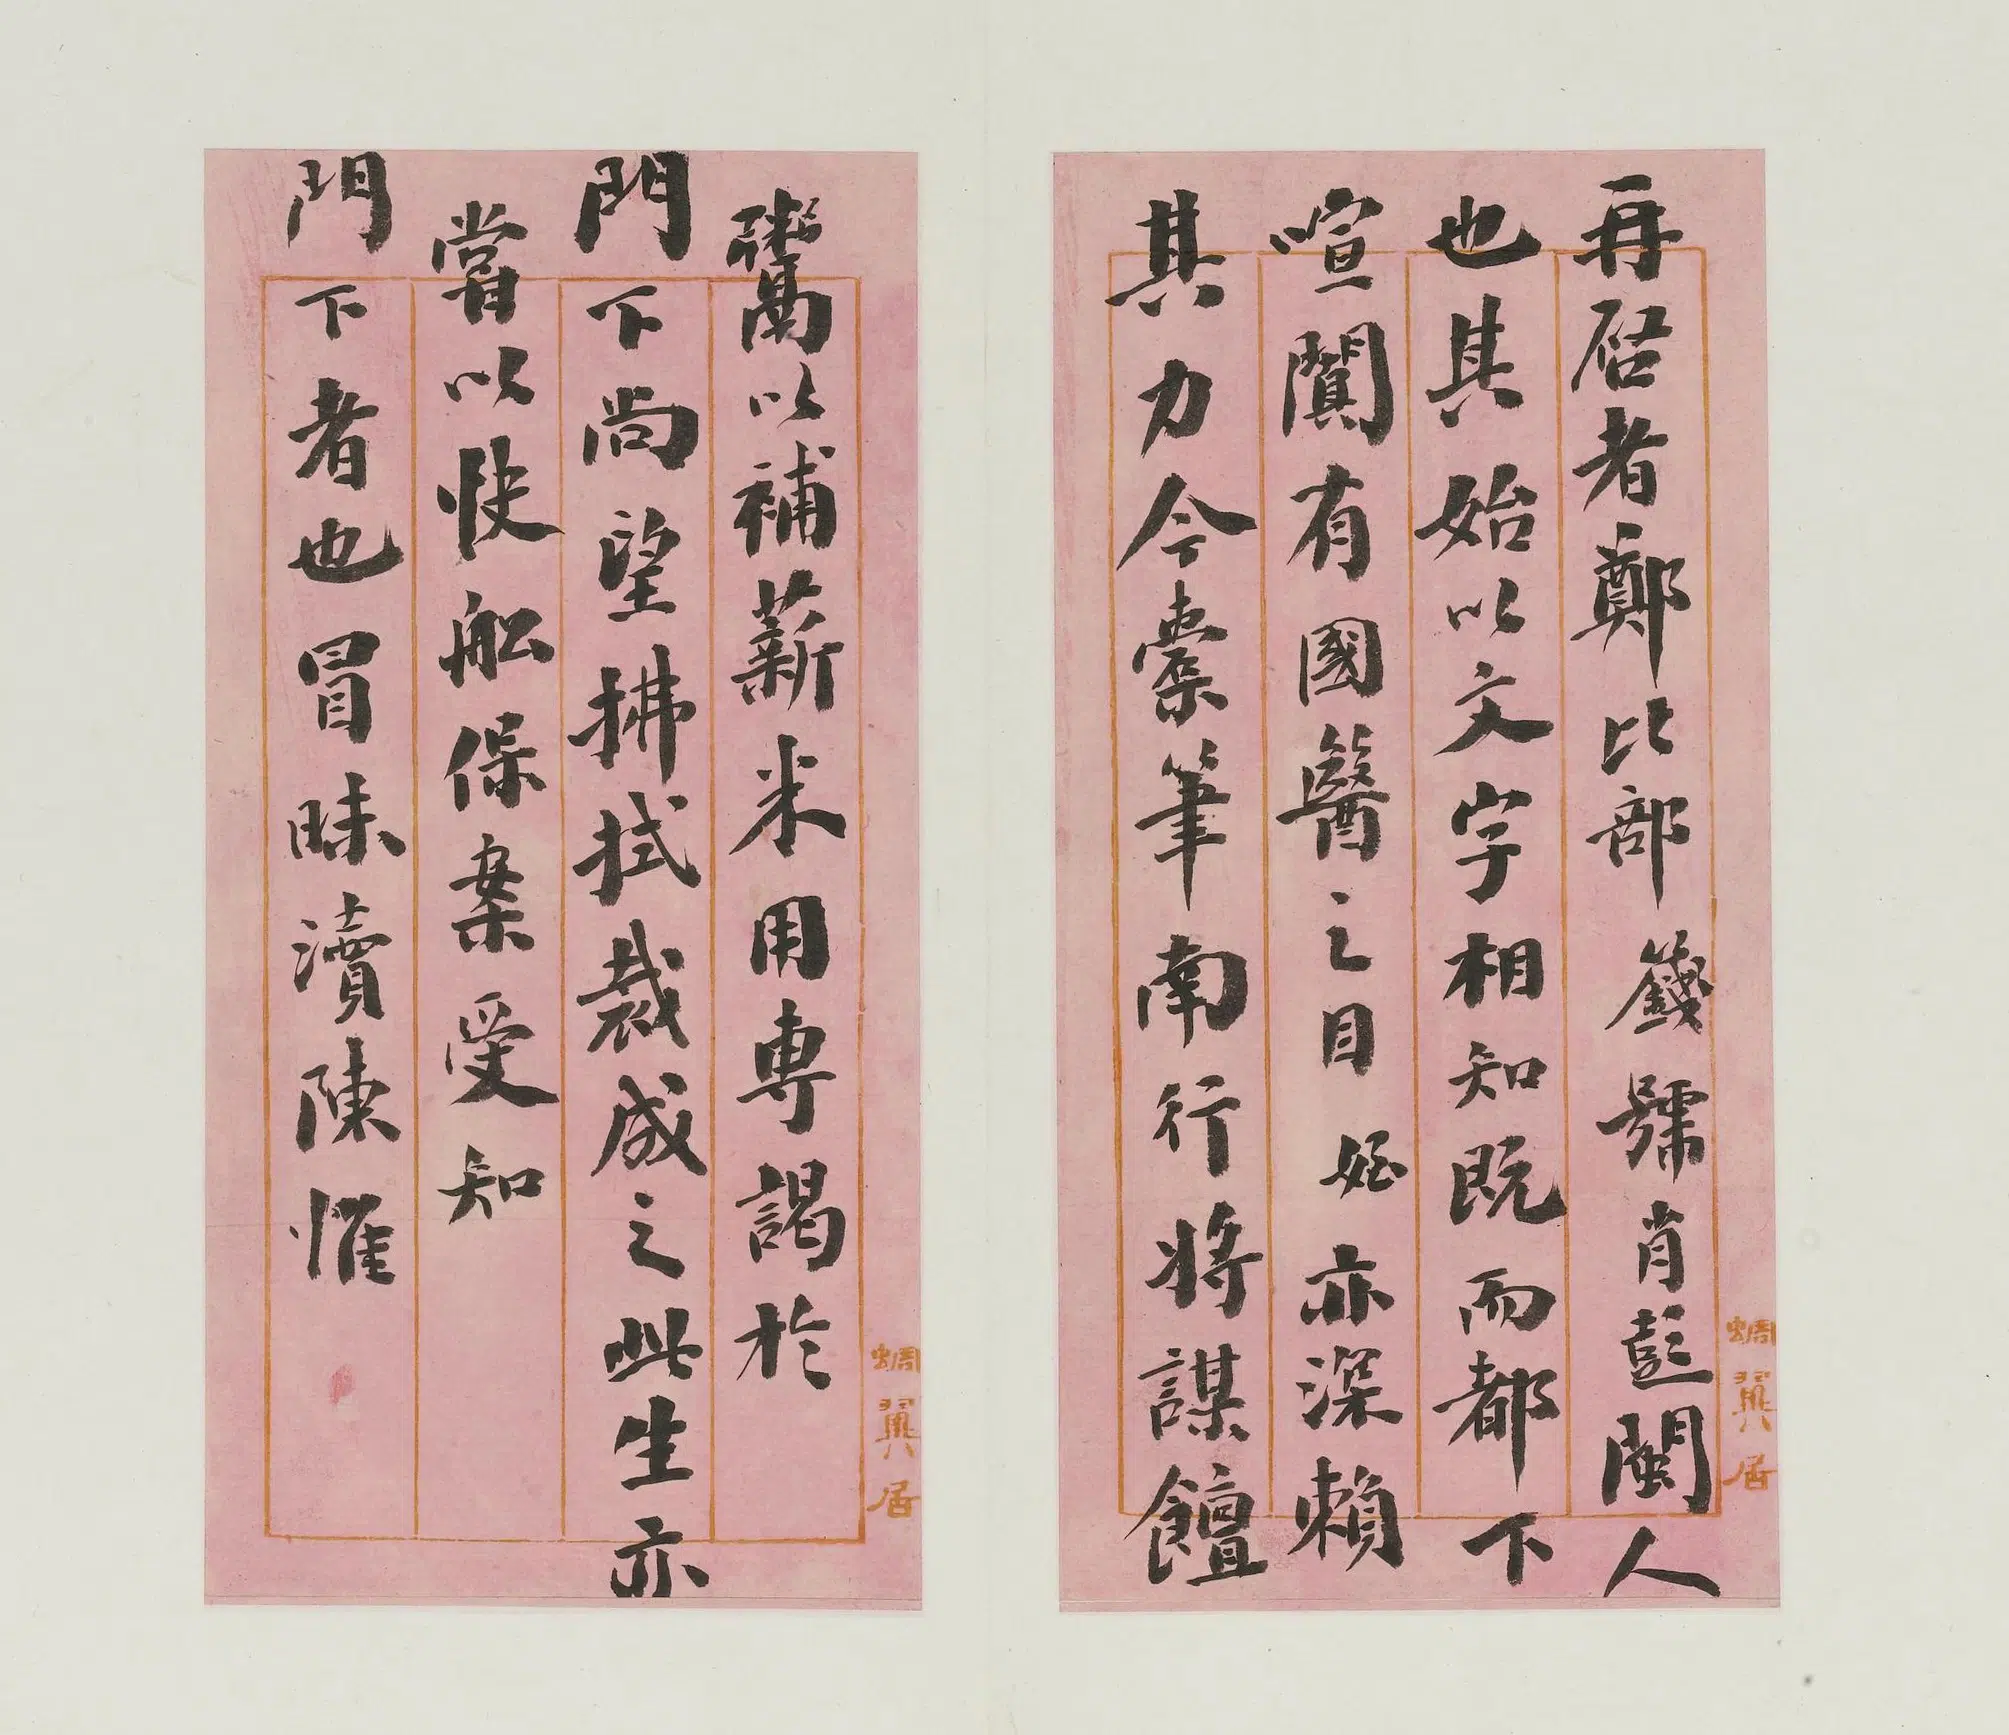 再启者鄭比部籛號肖彭閩人
也其始以文字相知既而都下
喧闐有國醫之目姪亦深賴
其力今橐筆南行將謀饘
蜩翼居
鬻以補薪米用專謁於
門下尚望拂拭裁成之此生亦
當以快船保案受知
門下者也冒昧瀆陳惟
蜩翼居